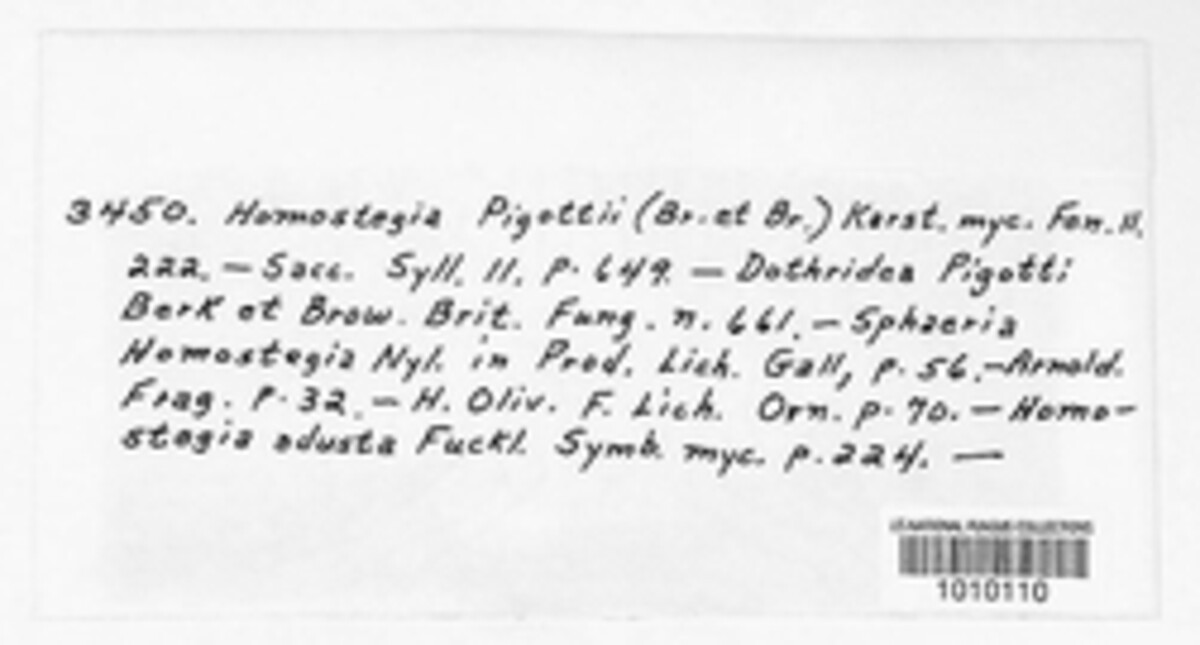 3450. Homostegia Pigottii (Br. et Br.) Karst. myc. Fen. II.
222. — Sacc. Syll. II. p. 649. — Dothridea Pigotti
Berk et Brow. Brit. Fung. n. 661. — Sphaeria
Homostegia Nyl. in Prod. Lich. Gall, p. 56. — Arnold.
Frag. p. 32. — H. Oliv. F. Lich. Orn. p. 70. — Homo-
stegia adusta Fuckl. Symb. myc. p. 224. —
US NATIONAL FUNGUS COLLECTIONS
1010110